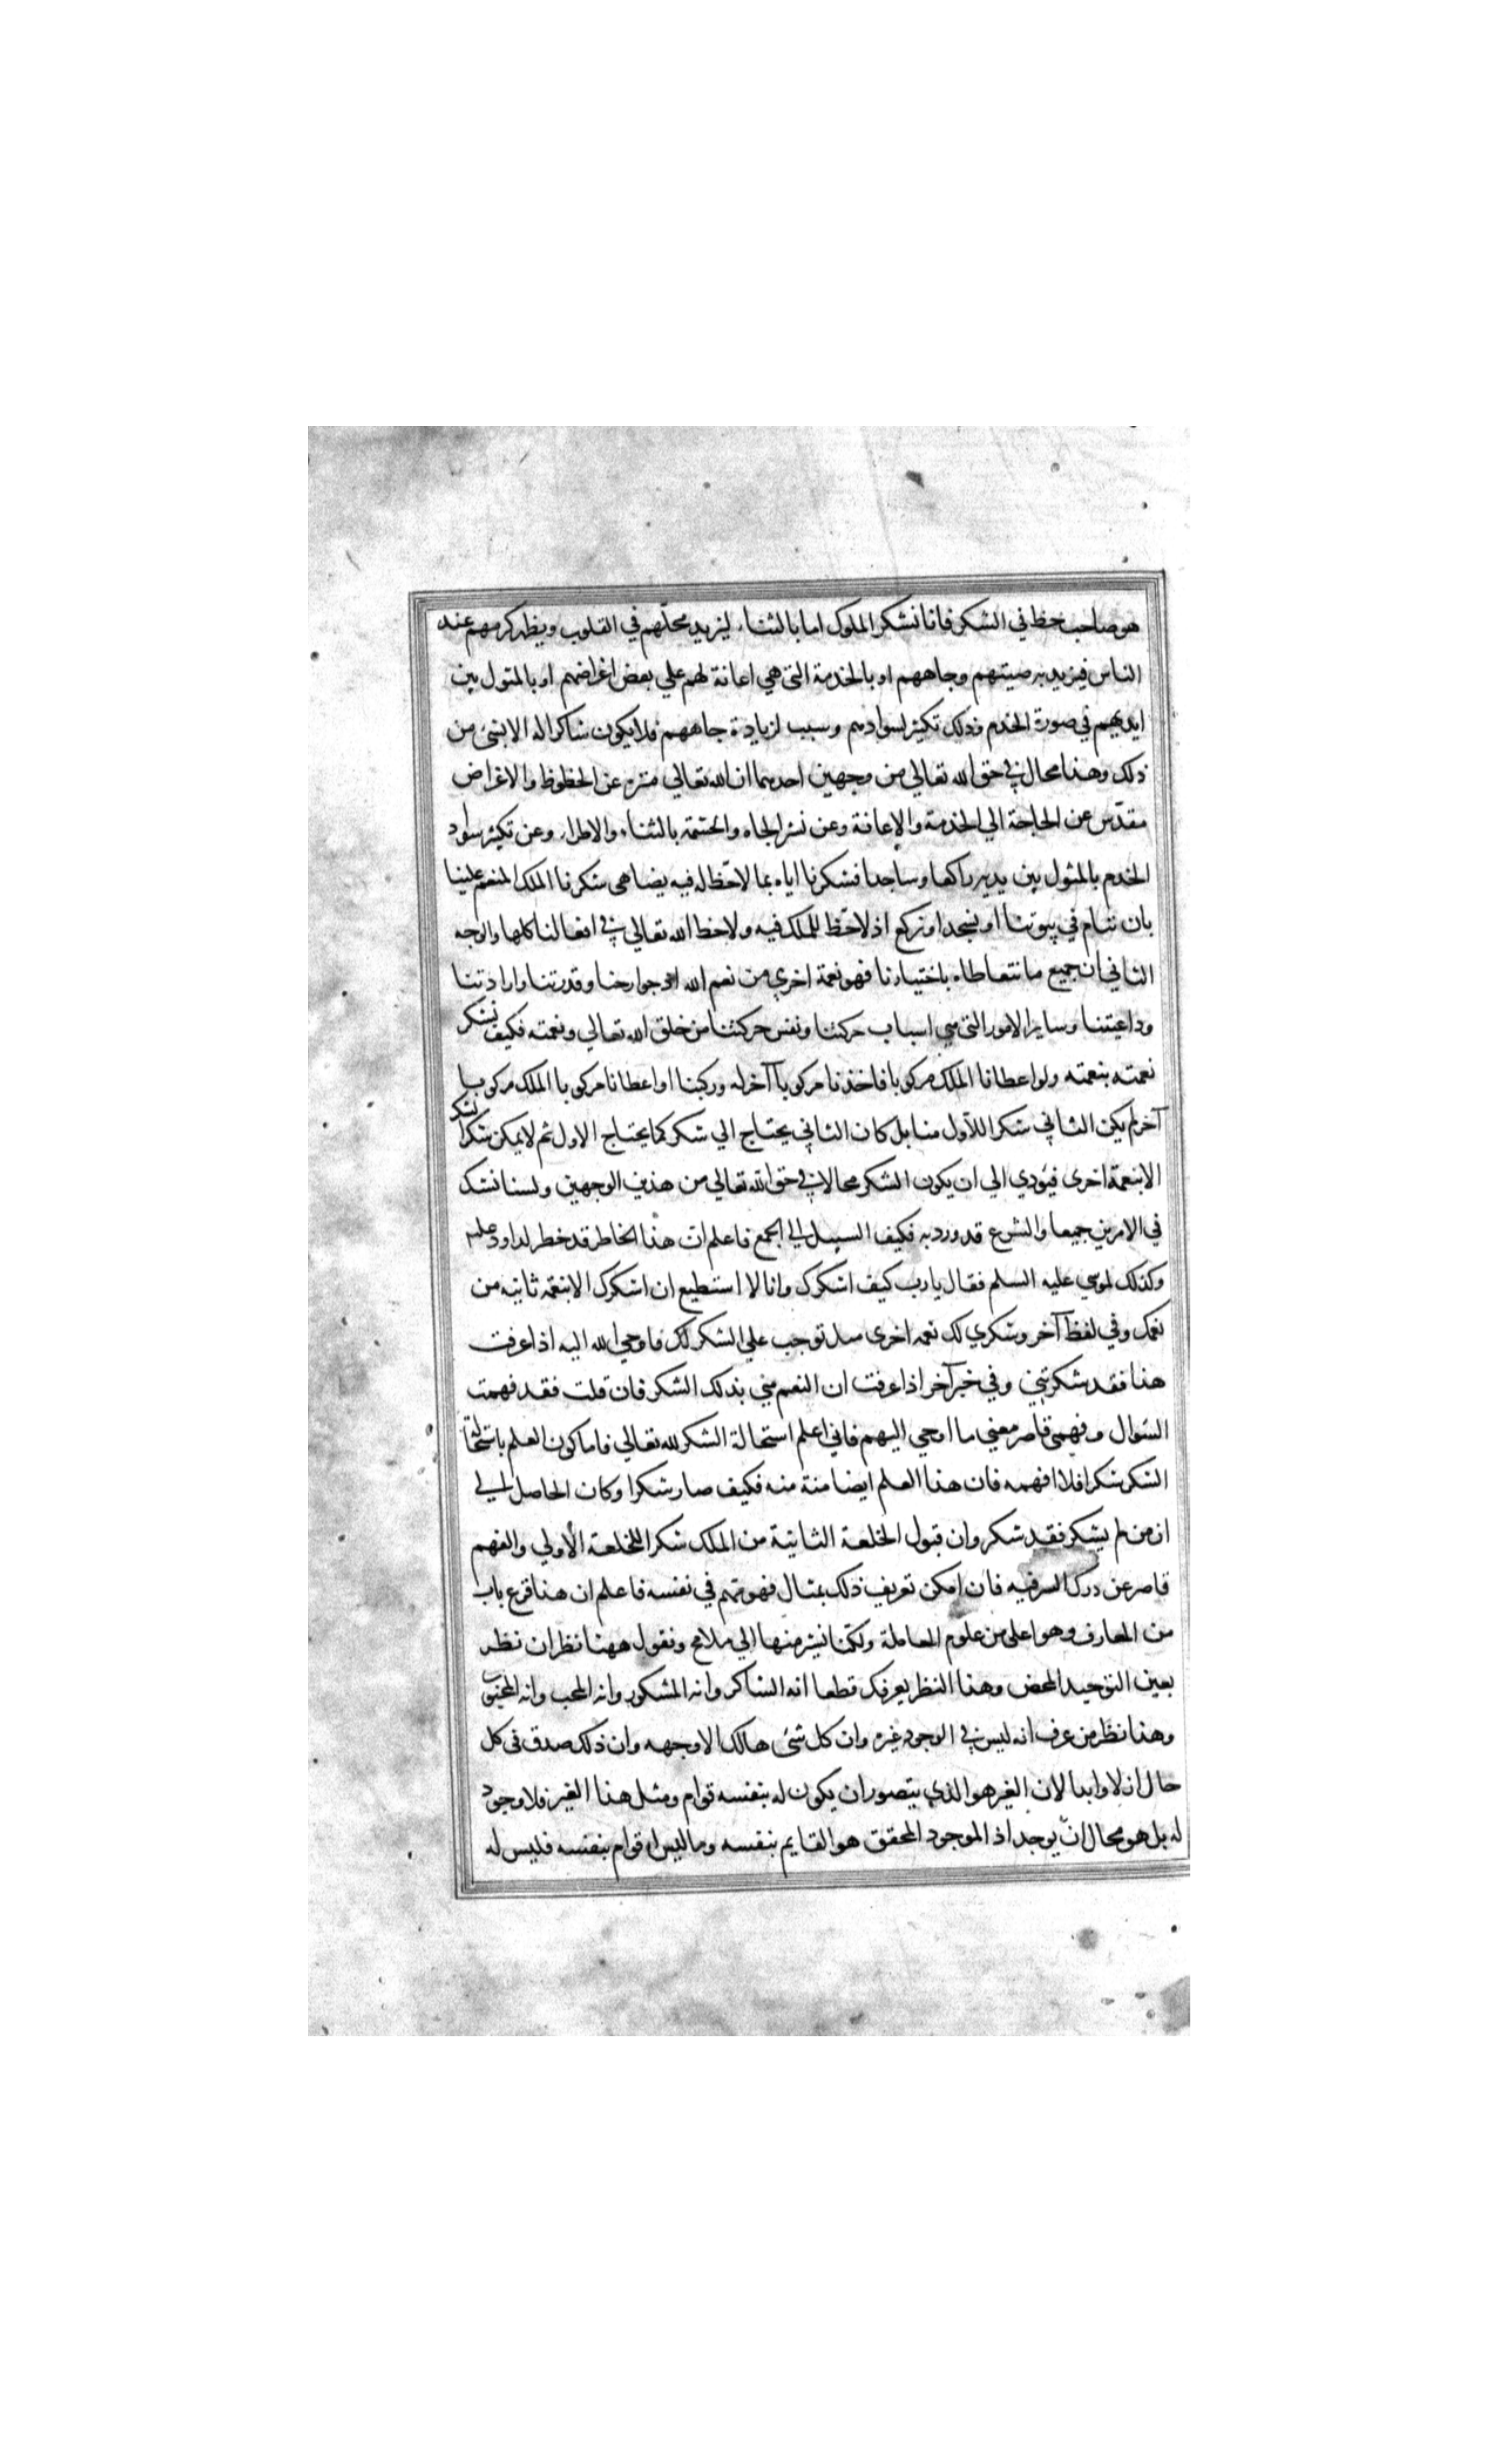 هو صاحب حظ في الشكر فانا نشكر الملوك اما بالثناء ليزيد محلّهم في القلوب ويظهر كرمهم عند
الناس فيزيد به صيتهم وجاههم او بالخدمة التي هي اعانة لهم علي بعض اغراضهم او بالمثول بين
ايديهم في صورة الخدم وذلك تكثير لسوادهم وسبب لزيادة جاههم فلا يكون شاكرا له الا بشئ من
ذلك وهذا محال في حق الله تعالي من وجهين احدهما ان الله تعالي منزه عن الحظوظ والاغراض
مقدّس عن الحاجة الي الخدمة والإعانة وعن نشر الجاه والحشمة بالثناء والاطراء وعن تكثير سواد
الخدم بالمثول بين يديه راكعا وساجدا فشكرنا اياه بما لا حظ له فيه يضاهي شكرنا الملك المنعم علينا
بان ننام في بيوتنا او نسجد او نركع اذ لا حظ للملك فيه ولا حظ لله تعالي في افعالنا كلها والوجه
الثاني ان جميع ما نتعاطاه باختيارنا فهو نعمة اخري من نعم الله اذ جوارحنا وقدرتنا وارادتنا
وداعيتنا وساير الامور التي هي اسباب حركتنا ونفس حركتنا من خلق الله تعالي ونعمته فكيف نشكر
نعمته بنعمته ولو اعطانا الملك مركوبا فاخذنا مركوبا آخر له وركبنا او اعطانا مركوبا الملك مركوبا
آخر لم يكن الثاني شكرا للاول منا بل كان الثاني يحتاج الي شكر كما يحتاج الاول ثم لا يمكن شكر الشكر
الا بنعمة اخري فيؤدي الي ان يكون الشكر محالا في حق الله تعالي من هذين الوجهين ولسنا نشك
في الامرين جميعا والشرع قد ورد به فكيف السبيل الي الجمع فاعلم ان هذا الخاطر قد خطر لداود عليه
وكذلك لموسي عليه السلم فقال يا رب كيف اشكرك وانا لا استطيع ان اشكرك الا بنعمة ثانية من
نعمك وفي لفظ آخر وشكري لك نعمة اخري منك توجب علي الشكر لك فاوحي الله اليه اذا عرفت
هذا فقد شكرتني وفي خبر آخر اذا عرفت ان النعم مني بذلك الشكر فان قلت فقد فهمت
السؤال وفهمي قاصر معني ما اوحي اليهم فاني اعلم استحالة الشكر لله تعالي فاما كون العلم باستحالة
الشكر شكرا فلا افهمه فان هذا العلم ايضا منة منه فكيف صار شكرا وكان الحاصل الي
ان من لم يشكر فقد شكر وان قبول الخلعة الثانية من الملك شكرا للخلعة الأولي والفهم
قاصر عن درك السر فيه فان امكن تعريف ذلك بمثال فهو مهم في نفسه فاعلم ان هذا قرع باب
من المعارف وهو اعلي من علوم المعاملة ولكنّا نشير منها الي ملامح ونقول ههنا نظران نظر
بعين التوحيد المحض وهذا النظر يعرفك قطعا انه الشاكر وانه المشكور وانه المحب وانه المحبوب
وهذا نظر من عرف انه ليس في الوجود غيره وان كل شئ هالك الا وجهه وان ذلك صدق في كل
حال ازلا وابدا لان الغير هو الذي يتصور ان يكون له بنفسه قوام ومثل هذا الغير فلا وجود
له بل هو محال ان يوجد اذ الموجود المحقق هو القايم بنفسه وما ليس له قوام بنفسه فليس له